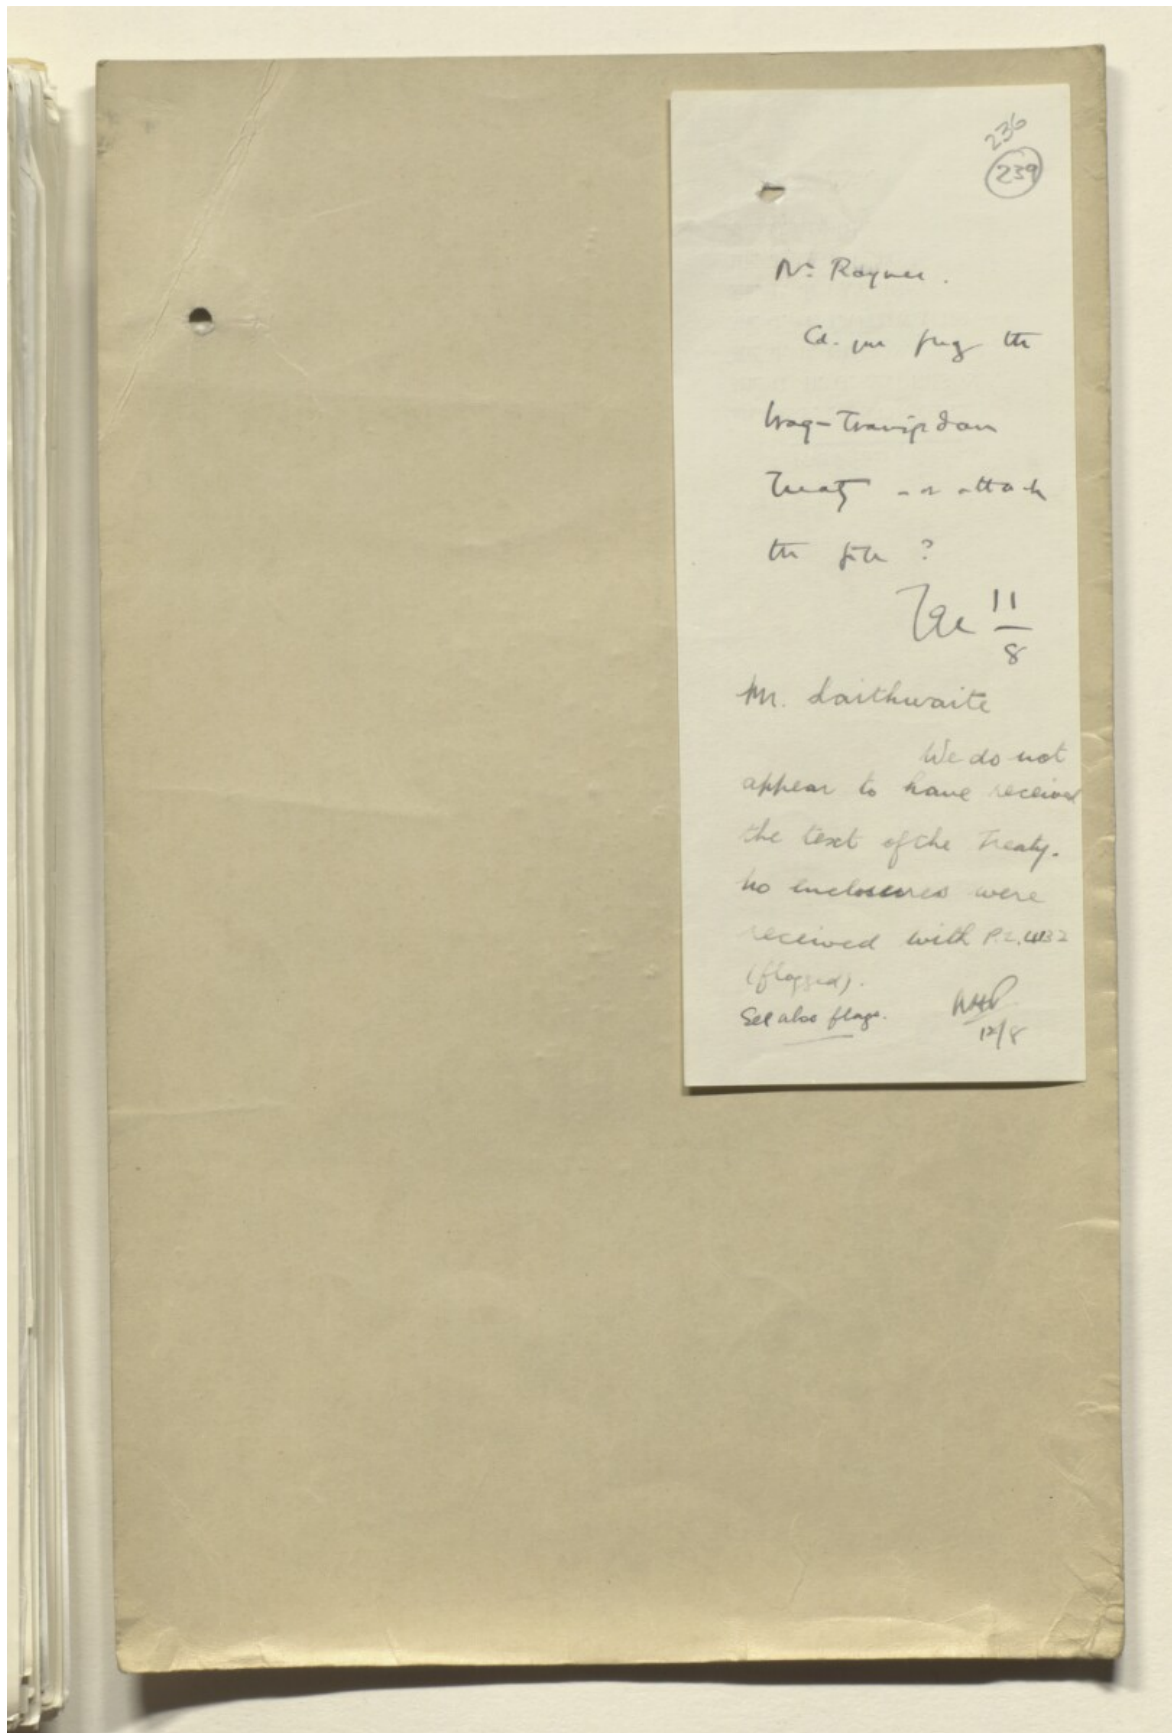 236
239
Mr. Rayner.
Cd. you flag the
Iraq-Transjordan
Treaty or attach
the file?
11/8
Mr. Laithwaite
We do not
appear to have received
the text of the Treaty.
No enclosures were
received with P.Z.
(flagged).
See also flags.
12/8